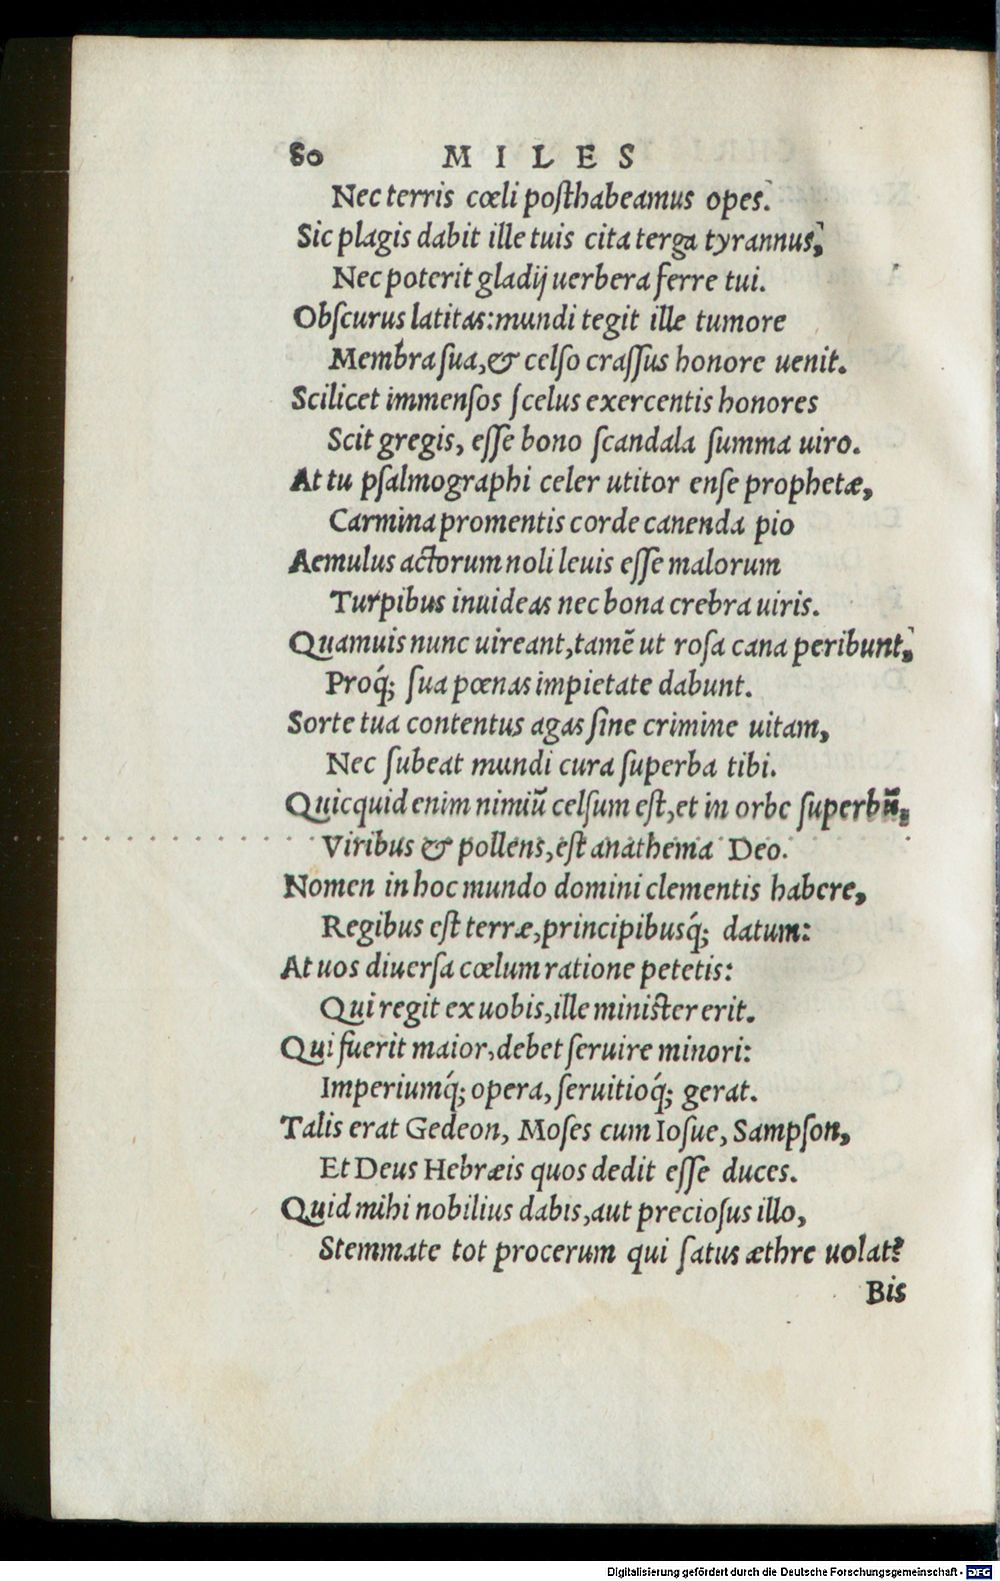 80 MILES
Nec terris cœli posthabeamus opes.
Sic plagis dabit ille tuis cita terga tyrannus,
Nec poterit gladij uerbera ferre tui.
Obscurus latitas: mundi tegit ille tumore
Membra sua, & celso crassus honore uenit.
Scilicet immensos scelus exercentis honores
Scit gregis, esse bono scandala summa uiro.
At tu psalmographi celer utitor ense prophetæ,
Carmina promentis corde canenda pio
Aemulus actorum noli leuis esse malorum
Turpibus inuideas nec bona crebra uiris.
Quamuis nunc uireant, tamē ut rosa cana peribunt,
Proq́; sua pœnas impietate dabunt.
Sorte tua contentus agas sine crimine uitam,
Nec subeat mundi cura superba tibi.
Quicquid enim nimiū celsum est, et in orbe superbū,
Viribus & pollens, est anathema Deo.
Nomen in hoc mundo domini clementis habere,
Regibus est terræ, principibusq́; datum:
At uos diuersa cœlum ratione petetis:
Qui regit ex uobis, ille minister erit.
Qui fuerit maior, debet seruire minori:
Imperiumq́; opera, seruitioq́; gerat.
Talis erat Gedeon, Moses cum Iosue, Sampson,
Et Deus Hebræis quos dedit esse duces.
Quid mihi nobilius dabis, aut preciosus illo,
Stemmate tot procerum qui satus æthre uolat?
Bis
Digitalisierung gefördert durch die Deutsche Forschungsgemeinschaft - DFG